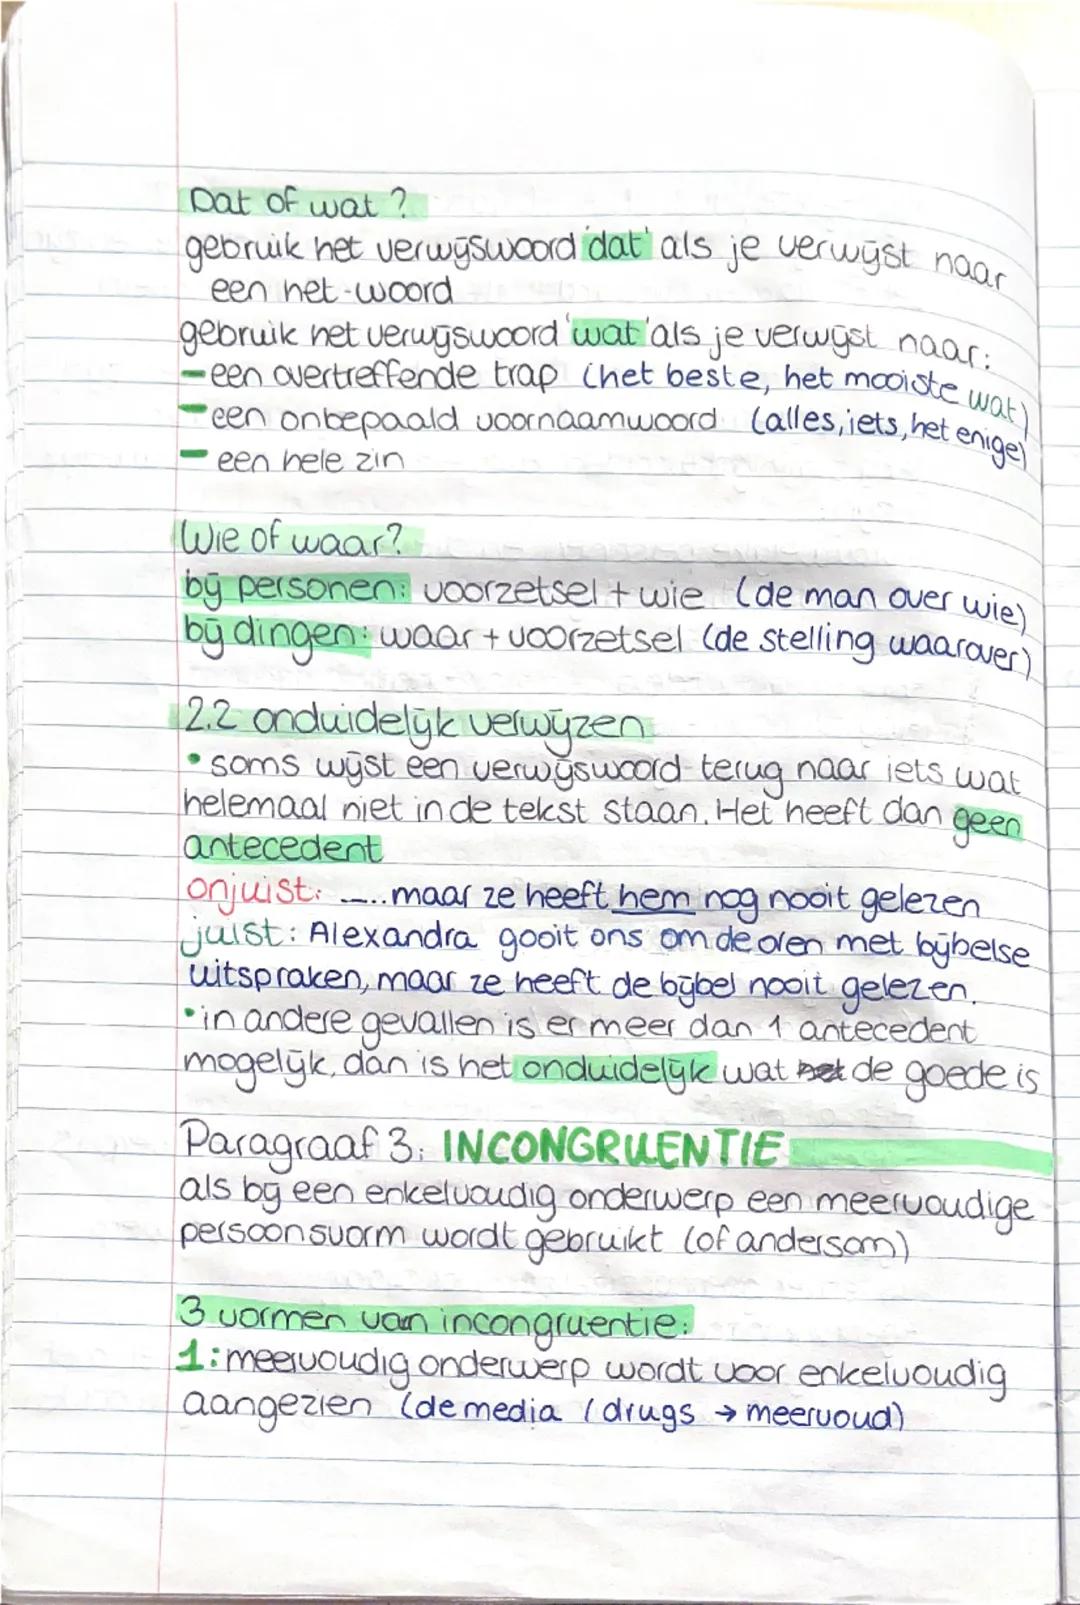 Dat of wat?
gebruik het verwijswoord 'dat' als je verwijst naar
een het-woord
gebruik het verwijswoord 'wat' als je verwijst naar:
- een overtreffende trap (het beste, het mooiste wat)
- een onbepaald voornaamwoord (alles, iets, het enige)
- een hele zin
Wie of waar?
bij personen: voorzetsel + wie (de man over wie)
bij dingen: waar + voorzetsel (de stelling waarover)
2.2 onduidelijk verwijzen
• soms wijst een verwijswoord terug naar iets wat
helemaal niet in de tekst staan. Het heeft dan geen
antecedent
onjuist: ..... maar ze heeft hem nog nooit gelezen
juist: Alexandra gooit ons om de oren met bijbelse
uitspraken, maar ze heeft de bijbel nooit gelezen.
• in andere gevallen is er meer dan 1 antecedent
mogelijk, dan is het onduidelijk wat het de goede is
Paragraaf 3: INCONGRUENTIE
als bij een enkelvoudig onderwerp een meervoudige
persoonsvorm wordt gebruikt (of andersom)
3 vormen van incongruentie:
1: meervoudig onderwerp wordt voor enkelvoudig
aangezien (de media / drugs → meervoud)